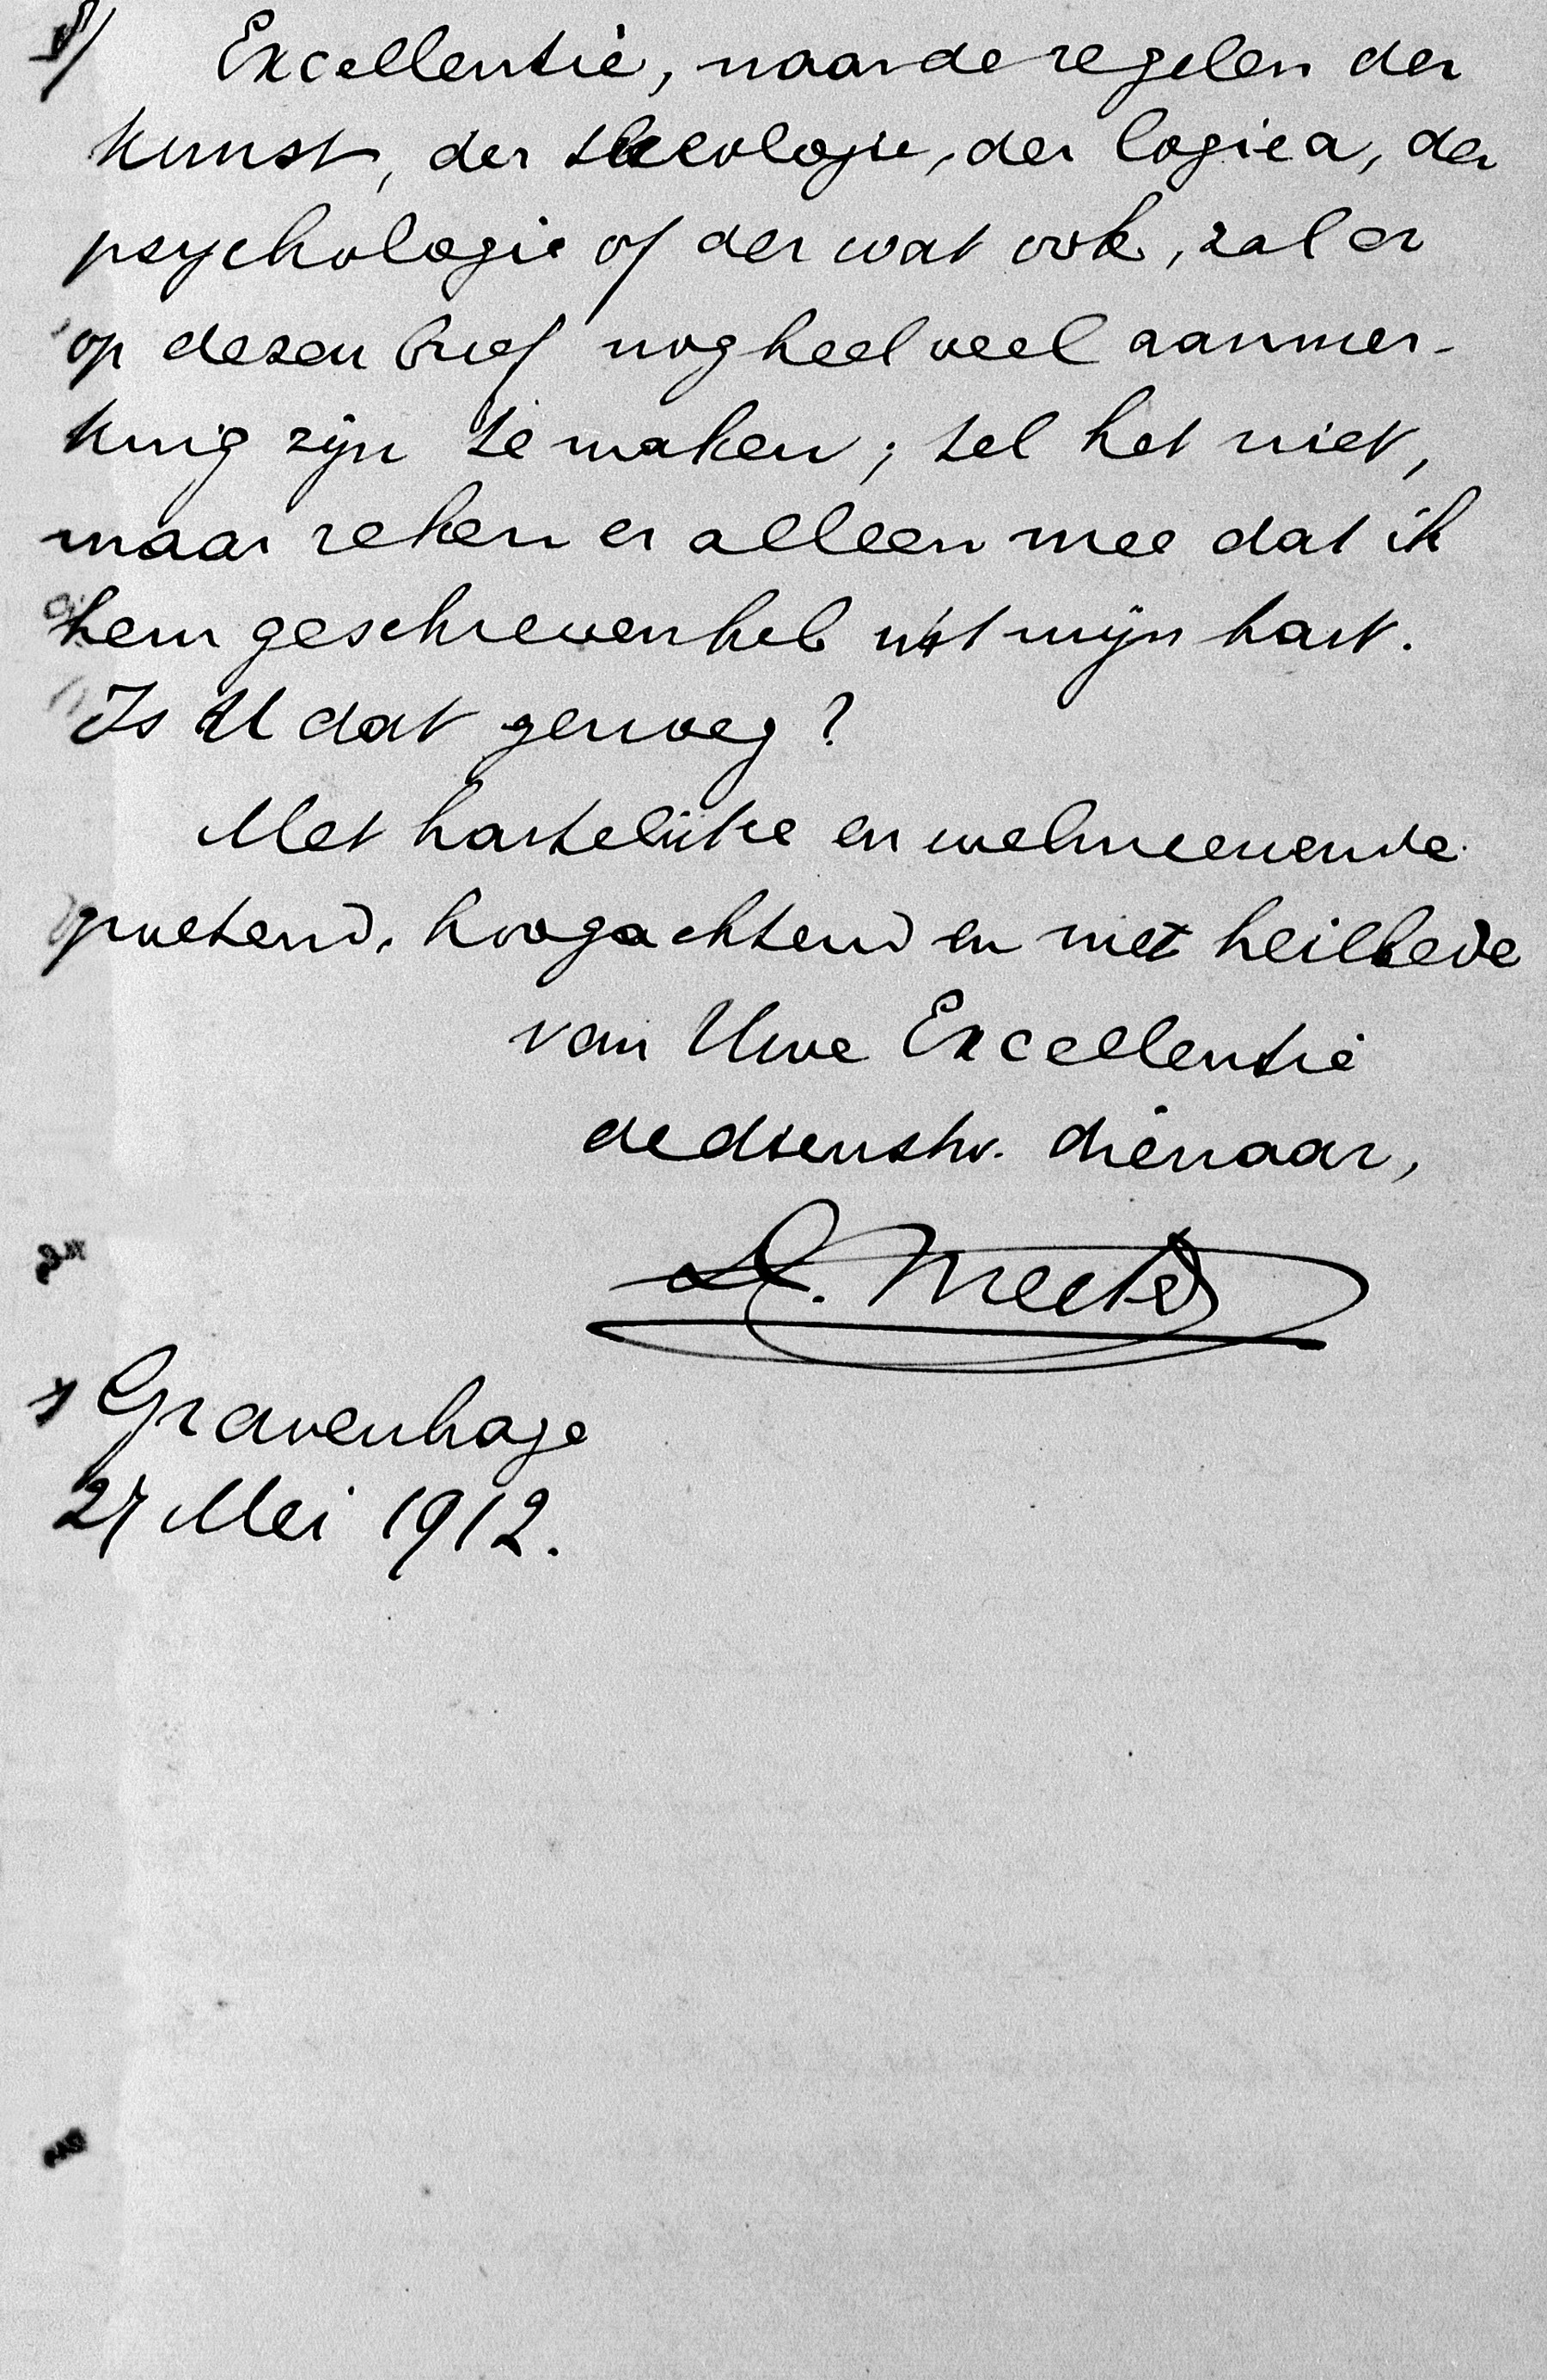 Excellentie, naar de regelen der
kunst, der theologie, der logica, der
psychologie of der wat ook, zal er
op dezen brief nog heel veel aanmer-
king zijn te maken; tel het niet,
maar reken er alleen mee dat ik
hem geschreven heb uit mijn hart.
Is U dat genoeg?
Met hartelijke en welmeenende
groetend, hoogachtend en met heilbede
van Uwe Excellentie
de dienstw. dienaar,
s Gravenhage
27 Mei 1912.